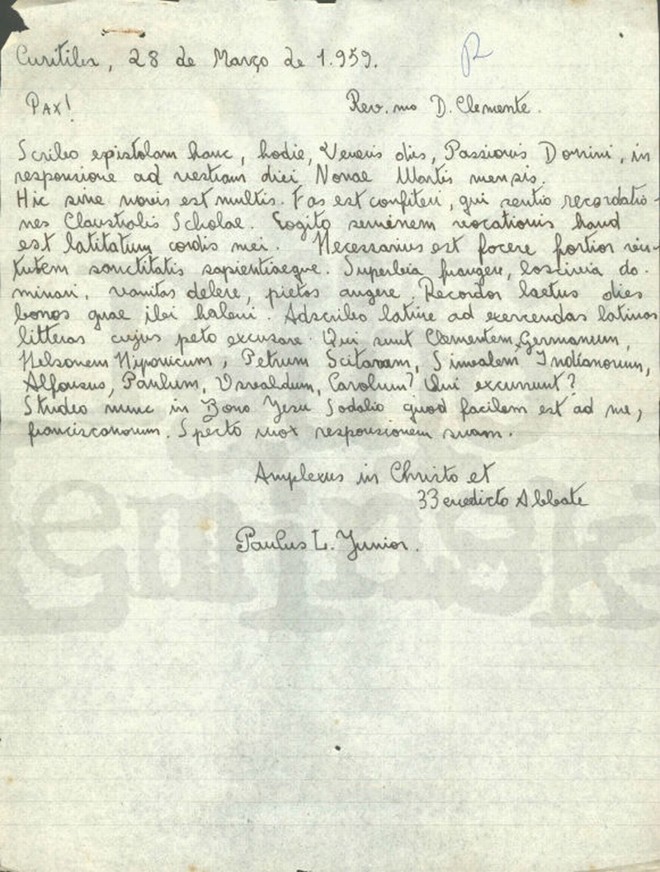 Curitiba, 28 de Março de 1.959.
PAX! Rev.mo D. Clemente.
Scribo epistolam hanc, hodie, Veneris dies, Passionis Domini, in
responsione ad vestram diei Nonae Martis mensis.
Hic sine novis est multis. Fas est confiteri, qui sentio recordatio-
nes Claustralis Scholae. Cogito seminem vocationis haud
est latitatum cordis mei. Necessarius est facere fortior vir-
tutem sanctitatis sapientiaeque. Superbia frangere, lascivia do-
minari, vanitas delere, pietas augere. Recordor laetus dies
bonos quae ibi habui. Adscribo latine ad exercendas latinas
litteras cujus peto excusare. Qui sunt Clementem, Germanum,
Nelsonem Niponicum, Petrum Scitavam, Sinvalem Indianorum,
Alfonsus, Paulum, Usvaldum, Carolum? Qui excurrunt?
Studeo nunc in Bono Jesu Sodalio quod facilem est ad me,
franciscanorum. Specto mox responsionem suam.
Amplexus in Christo et
Benedicto Abbate
Paulus L. Junior.